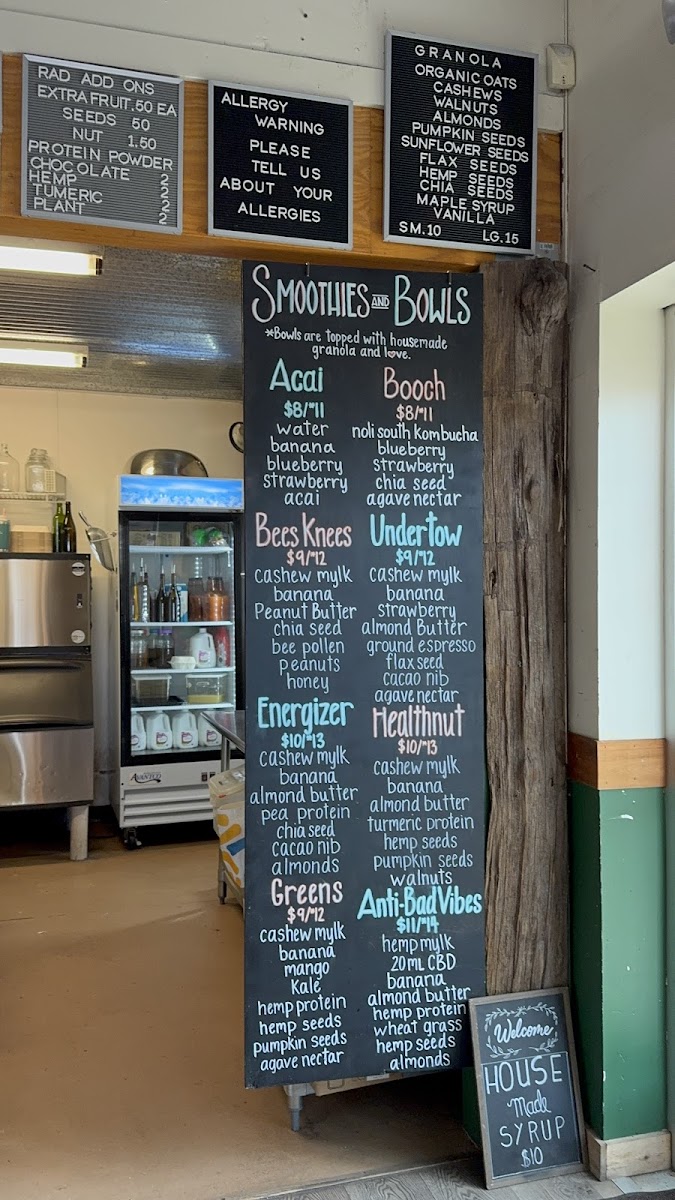 RAD ADD ONS
EXTRA FRUIT .50 EA
SEEDS 50
NUT 1.50
PROTEIN POWDER
CHOCOLATE 2
HEMP 2
TUMERIC 2
PLANT 2
ALLERGY
WARNING
PLEASE
TELL US
ABOUT YOUR
ALLERGIES
GRANOLA
ORGANIC OATS
CASHEWS
WALNUTS
ALMONDS
PUMPKIN SEEDS
SUNFLOWER SEEDS
FLAX SEEDS
HEMP SEEDS
CHIA SEEDS
MAPLE SYRUP
VANILLA
SM.10 LG.15
SMOOTHIES AND BOWLS
*Bowls are topped with housemade
granola and love.
Acai
$8/*11
water
banana
blueberry
strawberry
acai
Booch
$8/*11
noli south kombucha
blueberry
strawberry
chia seed
agave nectar
Bees Knees
$9/*12
cashew mylk
banana
Peanut Butter
chia seed
bee pollen
peanuts
honey
Undertow
$9/*12
cashew mylk
banana
strawberry
almond Butter
ground espresso
flax seed
cacao nib
agave nectar
Energizer
$10/*13
cashew mylk
banana
almond butter
pea protein
chia seed
cacao nib
almonds
Healthnut
$10/*13
cashew mylk
banana
almond butter
turmeric protein
hemp seeds
pumpkin seeds
walnuts
Greens
$9/*12
cashew mylk
banana
mango
Kale
hemp protein
hemp seeds
pumpkin seeds
agave nectar
Anti-Bad Vibes
$11/*14
hemp mylk
20mL CBD
banana
almond butter
hemp protein
wheat grass
hemp seeds
almonds
Welcome
HOUSE
Made
SYRUP
$10